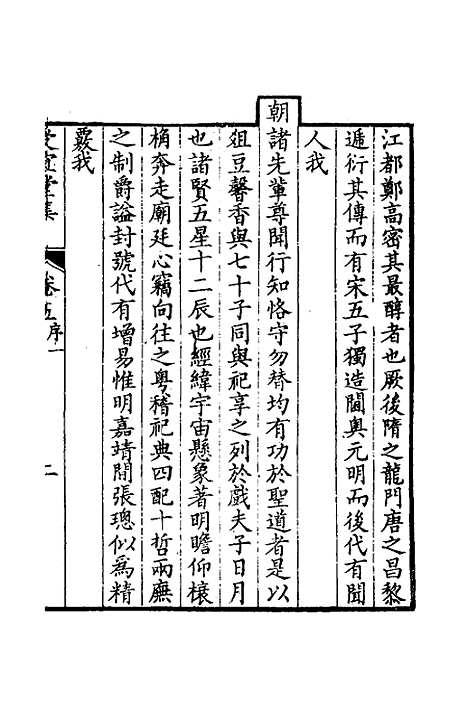 江都鄭高密其最醇者也厥後隋之龍門唐之昌黎
遞衍其傳而有宋五子獨造閫奧元明而後代有聞
人我
朝諸先輩尊聞行知恪守勿替均有功於聖道者是以
俎豆馨香與七十子同與祀享之列於戲夫子日月
也諸賢五星十二辰也經緯宇宙懸象著明瞻仰榱
桷奔走廟廷心竊向往之粵稽祀典四配十哲兩廡
之制爵謚封號代有增易惟明嘉靖間張璁似為精
覈我
堂集 卷五序一 二